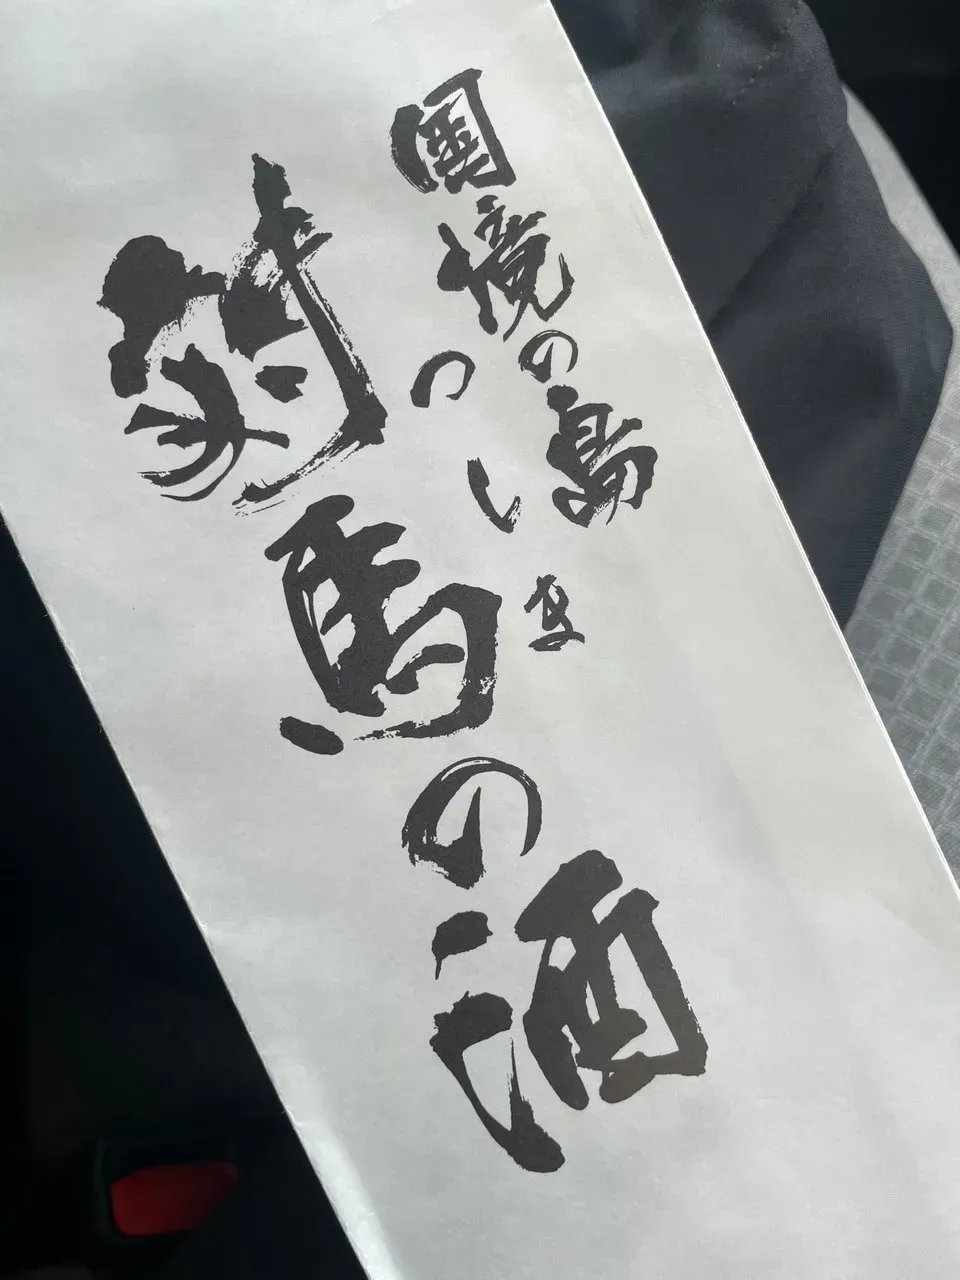 国境の島
つしま
対馬の酒